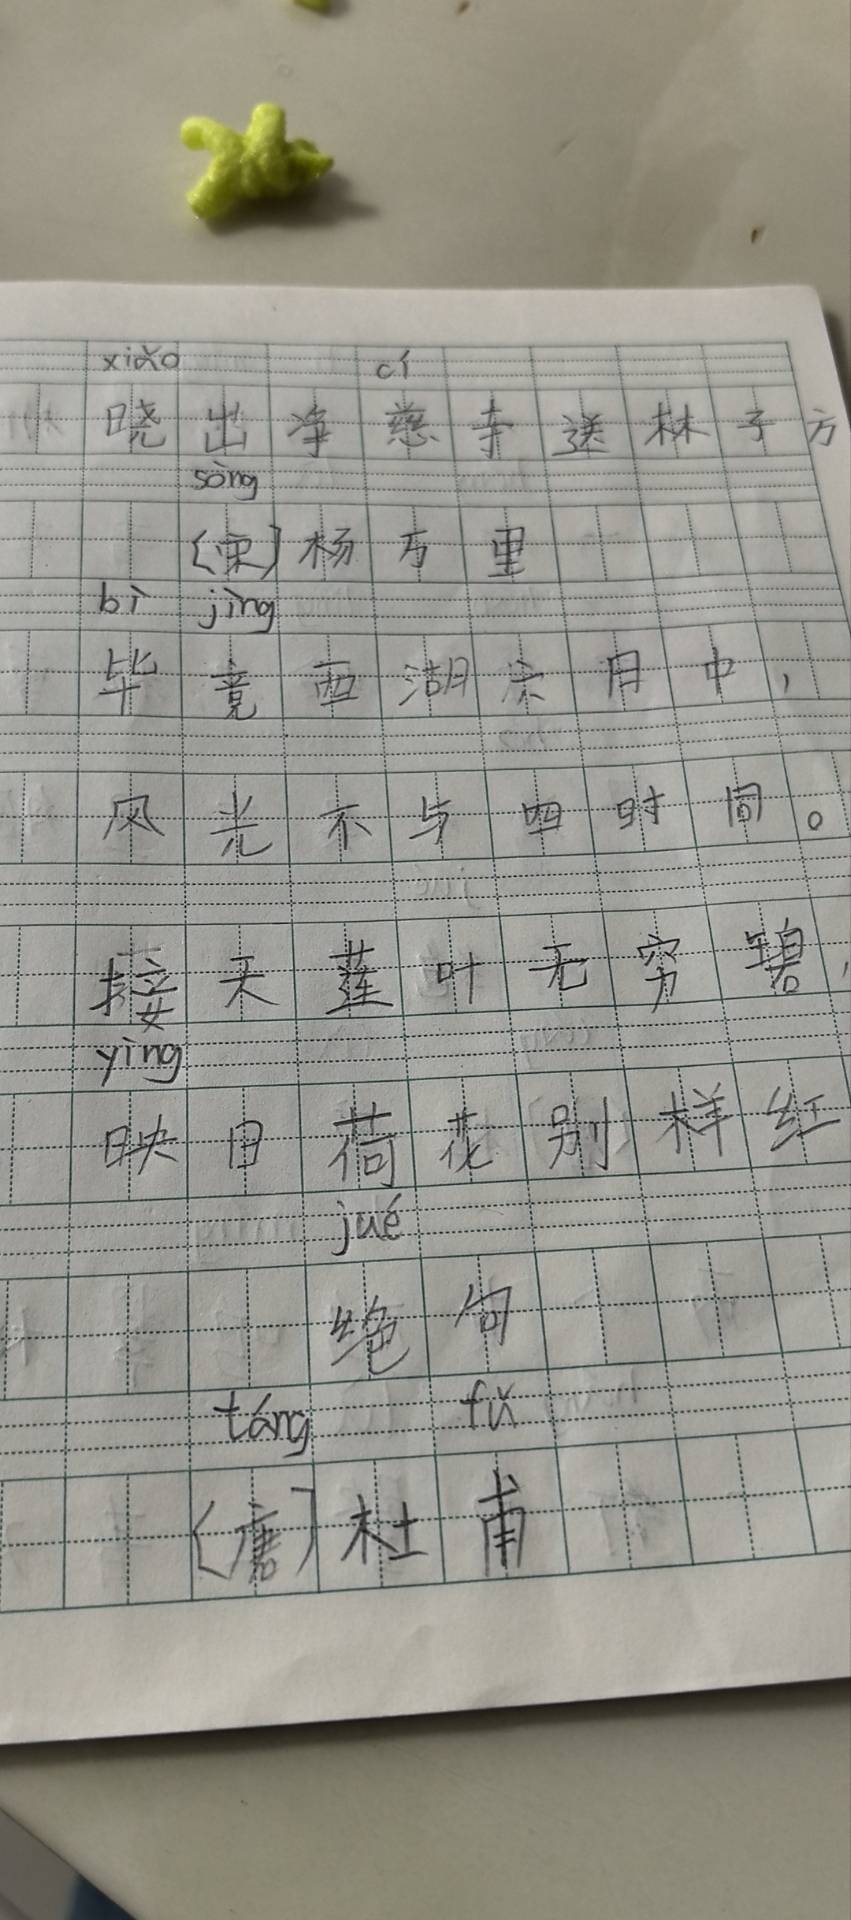 xiǎo cí
晓出净慈寺送林子方
sòng
〔宋〕杨万里
bì jìng
毕竟西湖六月中，
风光不与四时同。
接天莲叶无穷碧，
yìng
映日荷花别样红
jué
绝句
táng fǔ
〔唐〕杜甫